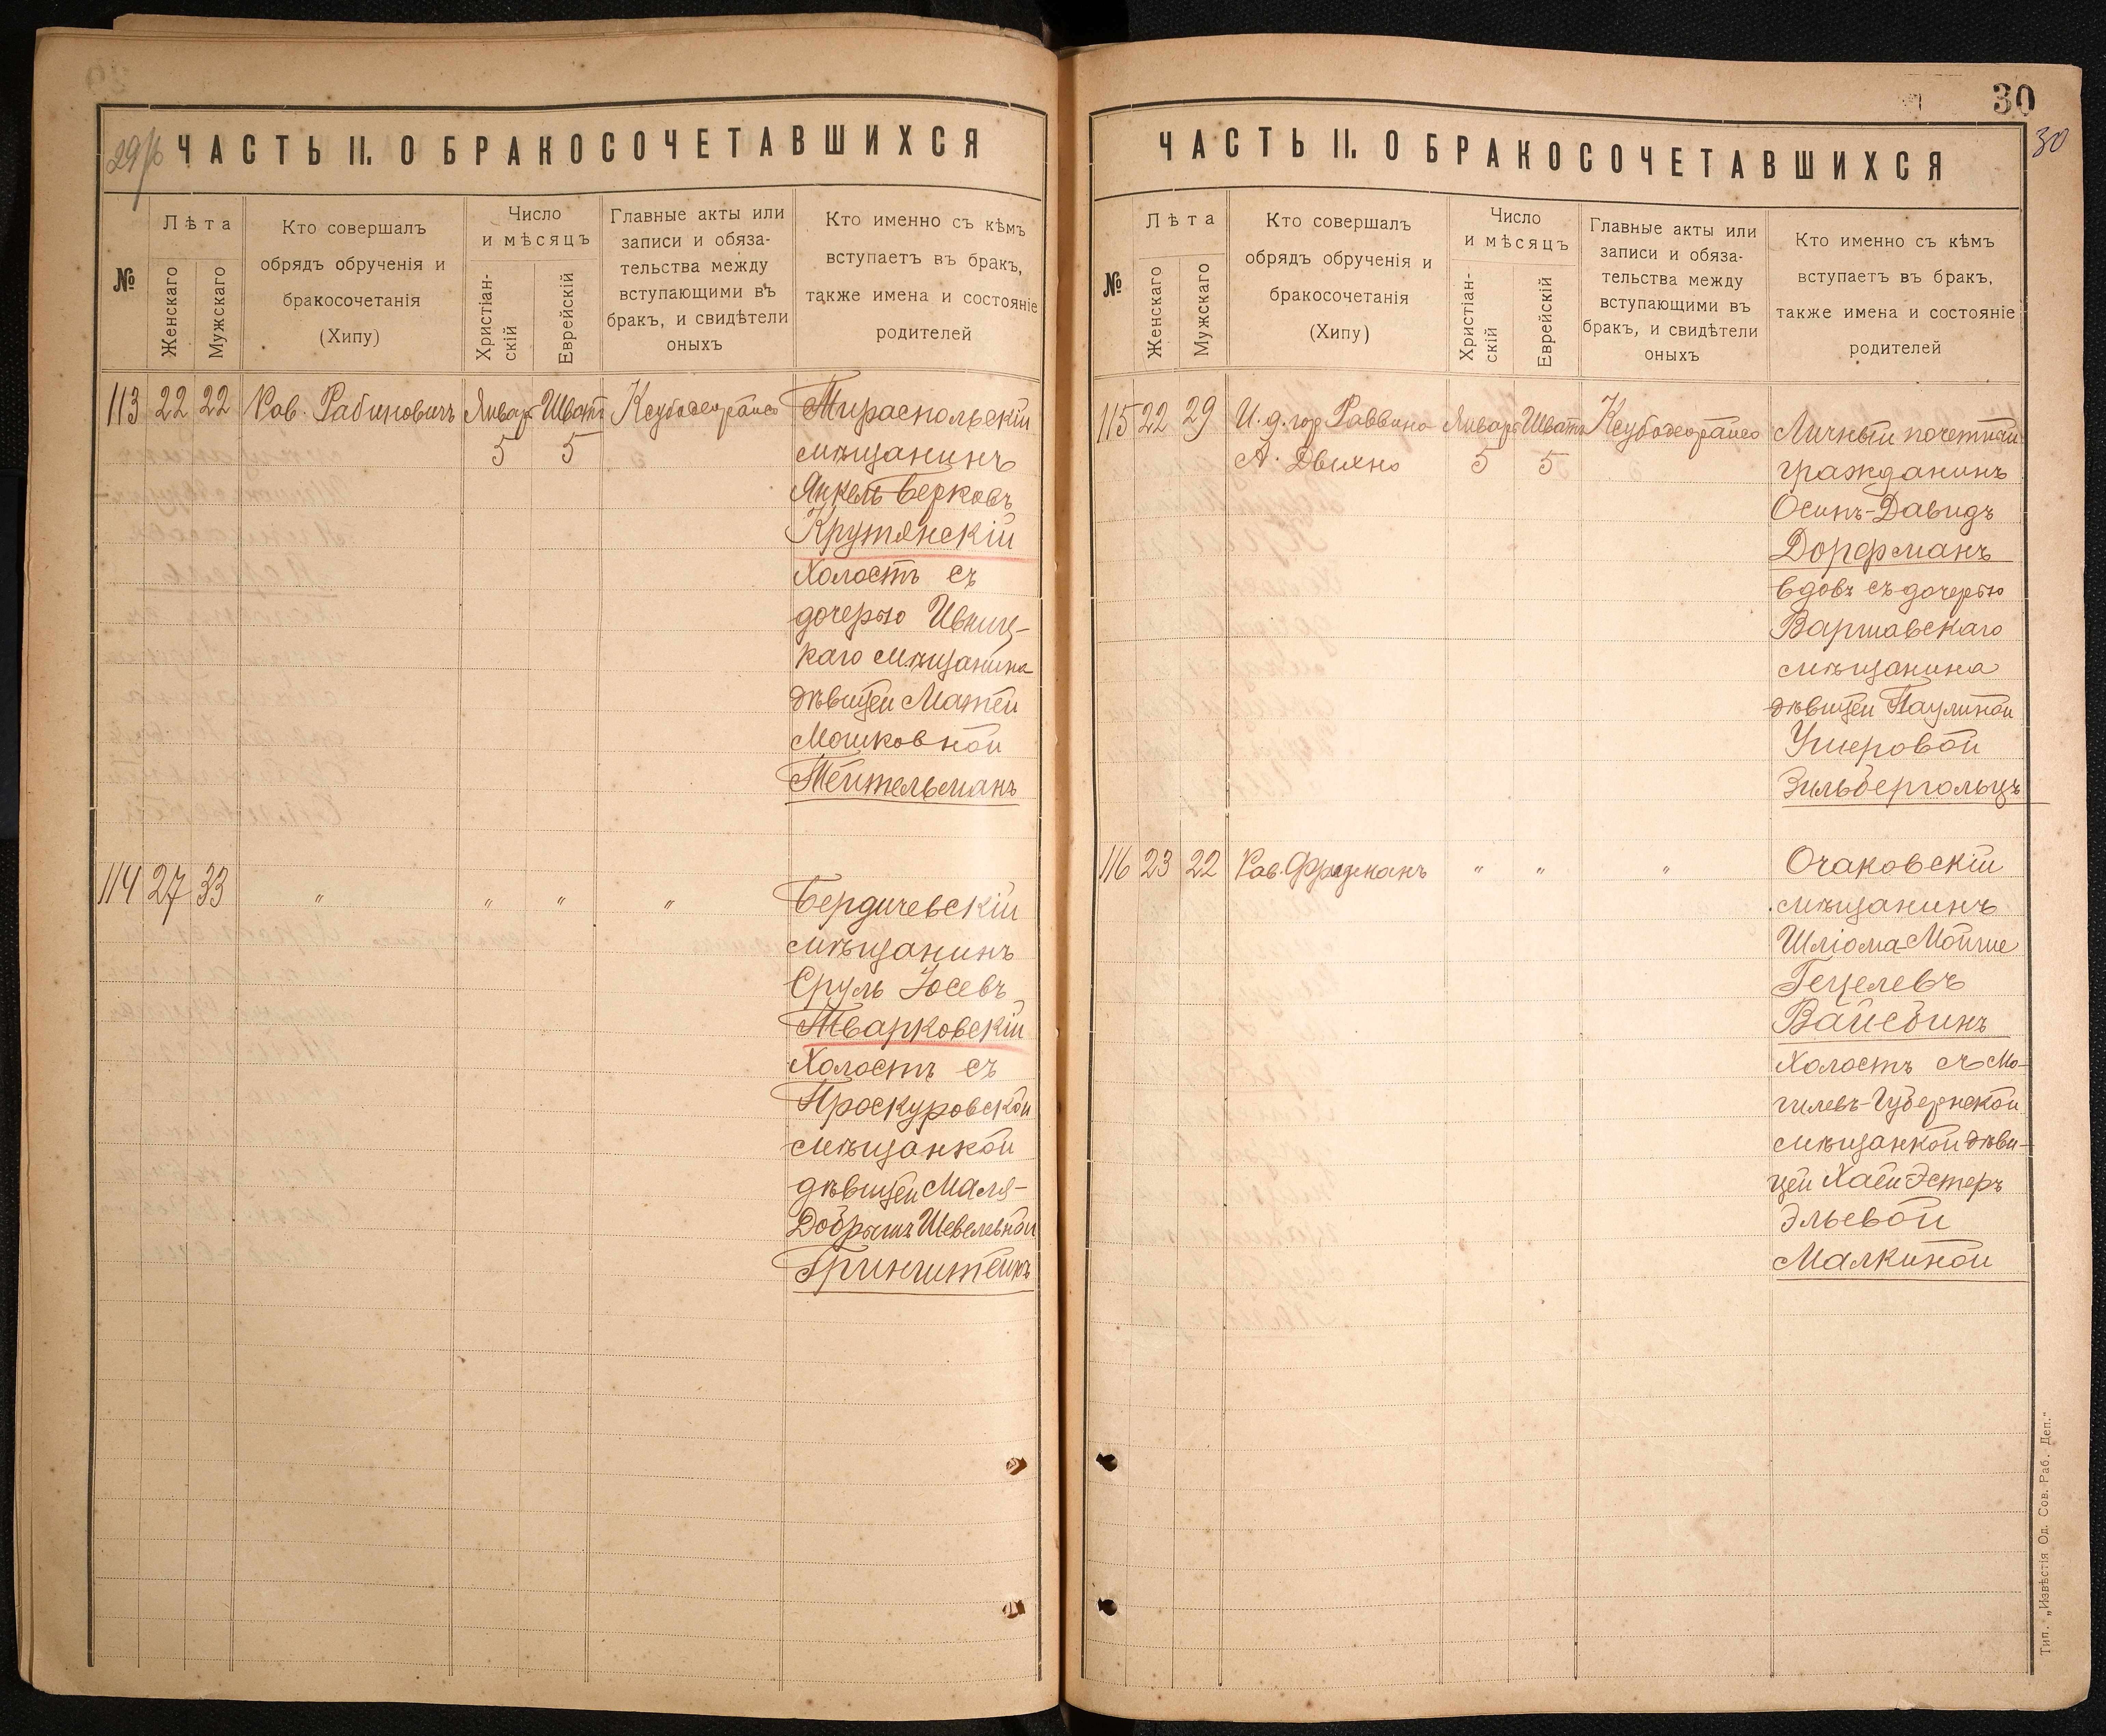 29/б
ЧАСТЬ II. О БРАКОСОЧЕТАВШИХСЯ
№
Лѣта
Женскаго
Мужскаго
Кто совершалъ
обрядъ обрученія и
бракосочетанія
(Хипу)
Число
и мѣсяцъ
Христіан-
скій
Еврейскій
Главные акты или
записи и обяза-
тельства между
вступающими въ
бракъ, и свидѣтели
оныхъ
Кто именно съ кѣмъ
вступаетъ въ бракъ,
также имена и состояніе
родителей
113 22 22 Рав. Рабиновичъ Январ Шват Ксубодеорайсо Тираспольскій
5 5 мѣщанинъ
Янкель Берковъ
Крутянскій
Холостъ съ
дочерью Ивниц-
каго мѣщанина
дѣвицей Матей
Мошковной
Тейтельманъ
114 27 33 " " " " Бердичевскій
мѣщанинъ
Сруль Іосевъ
Тварковскій
Холостъ съ
Проскуровской
мѣщанкой
дѣвицей Маля-
Добрышъ Шевелевной
Гринштейнъ
30
30
ЧАСТЬ II. О БРАКОСОЧЕТАВШИХСЯ
№
Лѣта
Женскаго
Мужскаго
Кто совершалъ
обрядъ обрученія и
бракосочетанія
(Хипу)
Число
и мѣсяцъ
Христіан-
скій
Еврейскій
Главные акты или
записи и обяза-
тельства между
вступающими въ
бракъ, и свидѣтели
оныхъ
Кто именно съ кѣмъ
вступаетъ въ бракъ,
также имена и состояніе
родителей
115 22 29 И. д. гор Раввина Январ Шватъ Ксубодеорайсо Личный почетный
А. Двихно 5 5 гражданинъ
Осипъ-Давидъ
Дорфманъ
вдовъ съ дочерью
Варшавскаго
мѣщанина
дѣвицей Паулиной
Ушеровой
Зильбергольцъ
116 23 22 Рав. " " " Очаковскій
мѣщанинъ
Шліома-Мойше
Гецелевъ
Вайсбинъ
Холостъ съ Мо-
гилевъ-Губернской
мѣщанкой дѣви-
цей Хаей-Эстеръ
Эльевой
Малкиной
Тип. „Извѣстія Од. Сов. Раб. Деп."